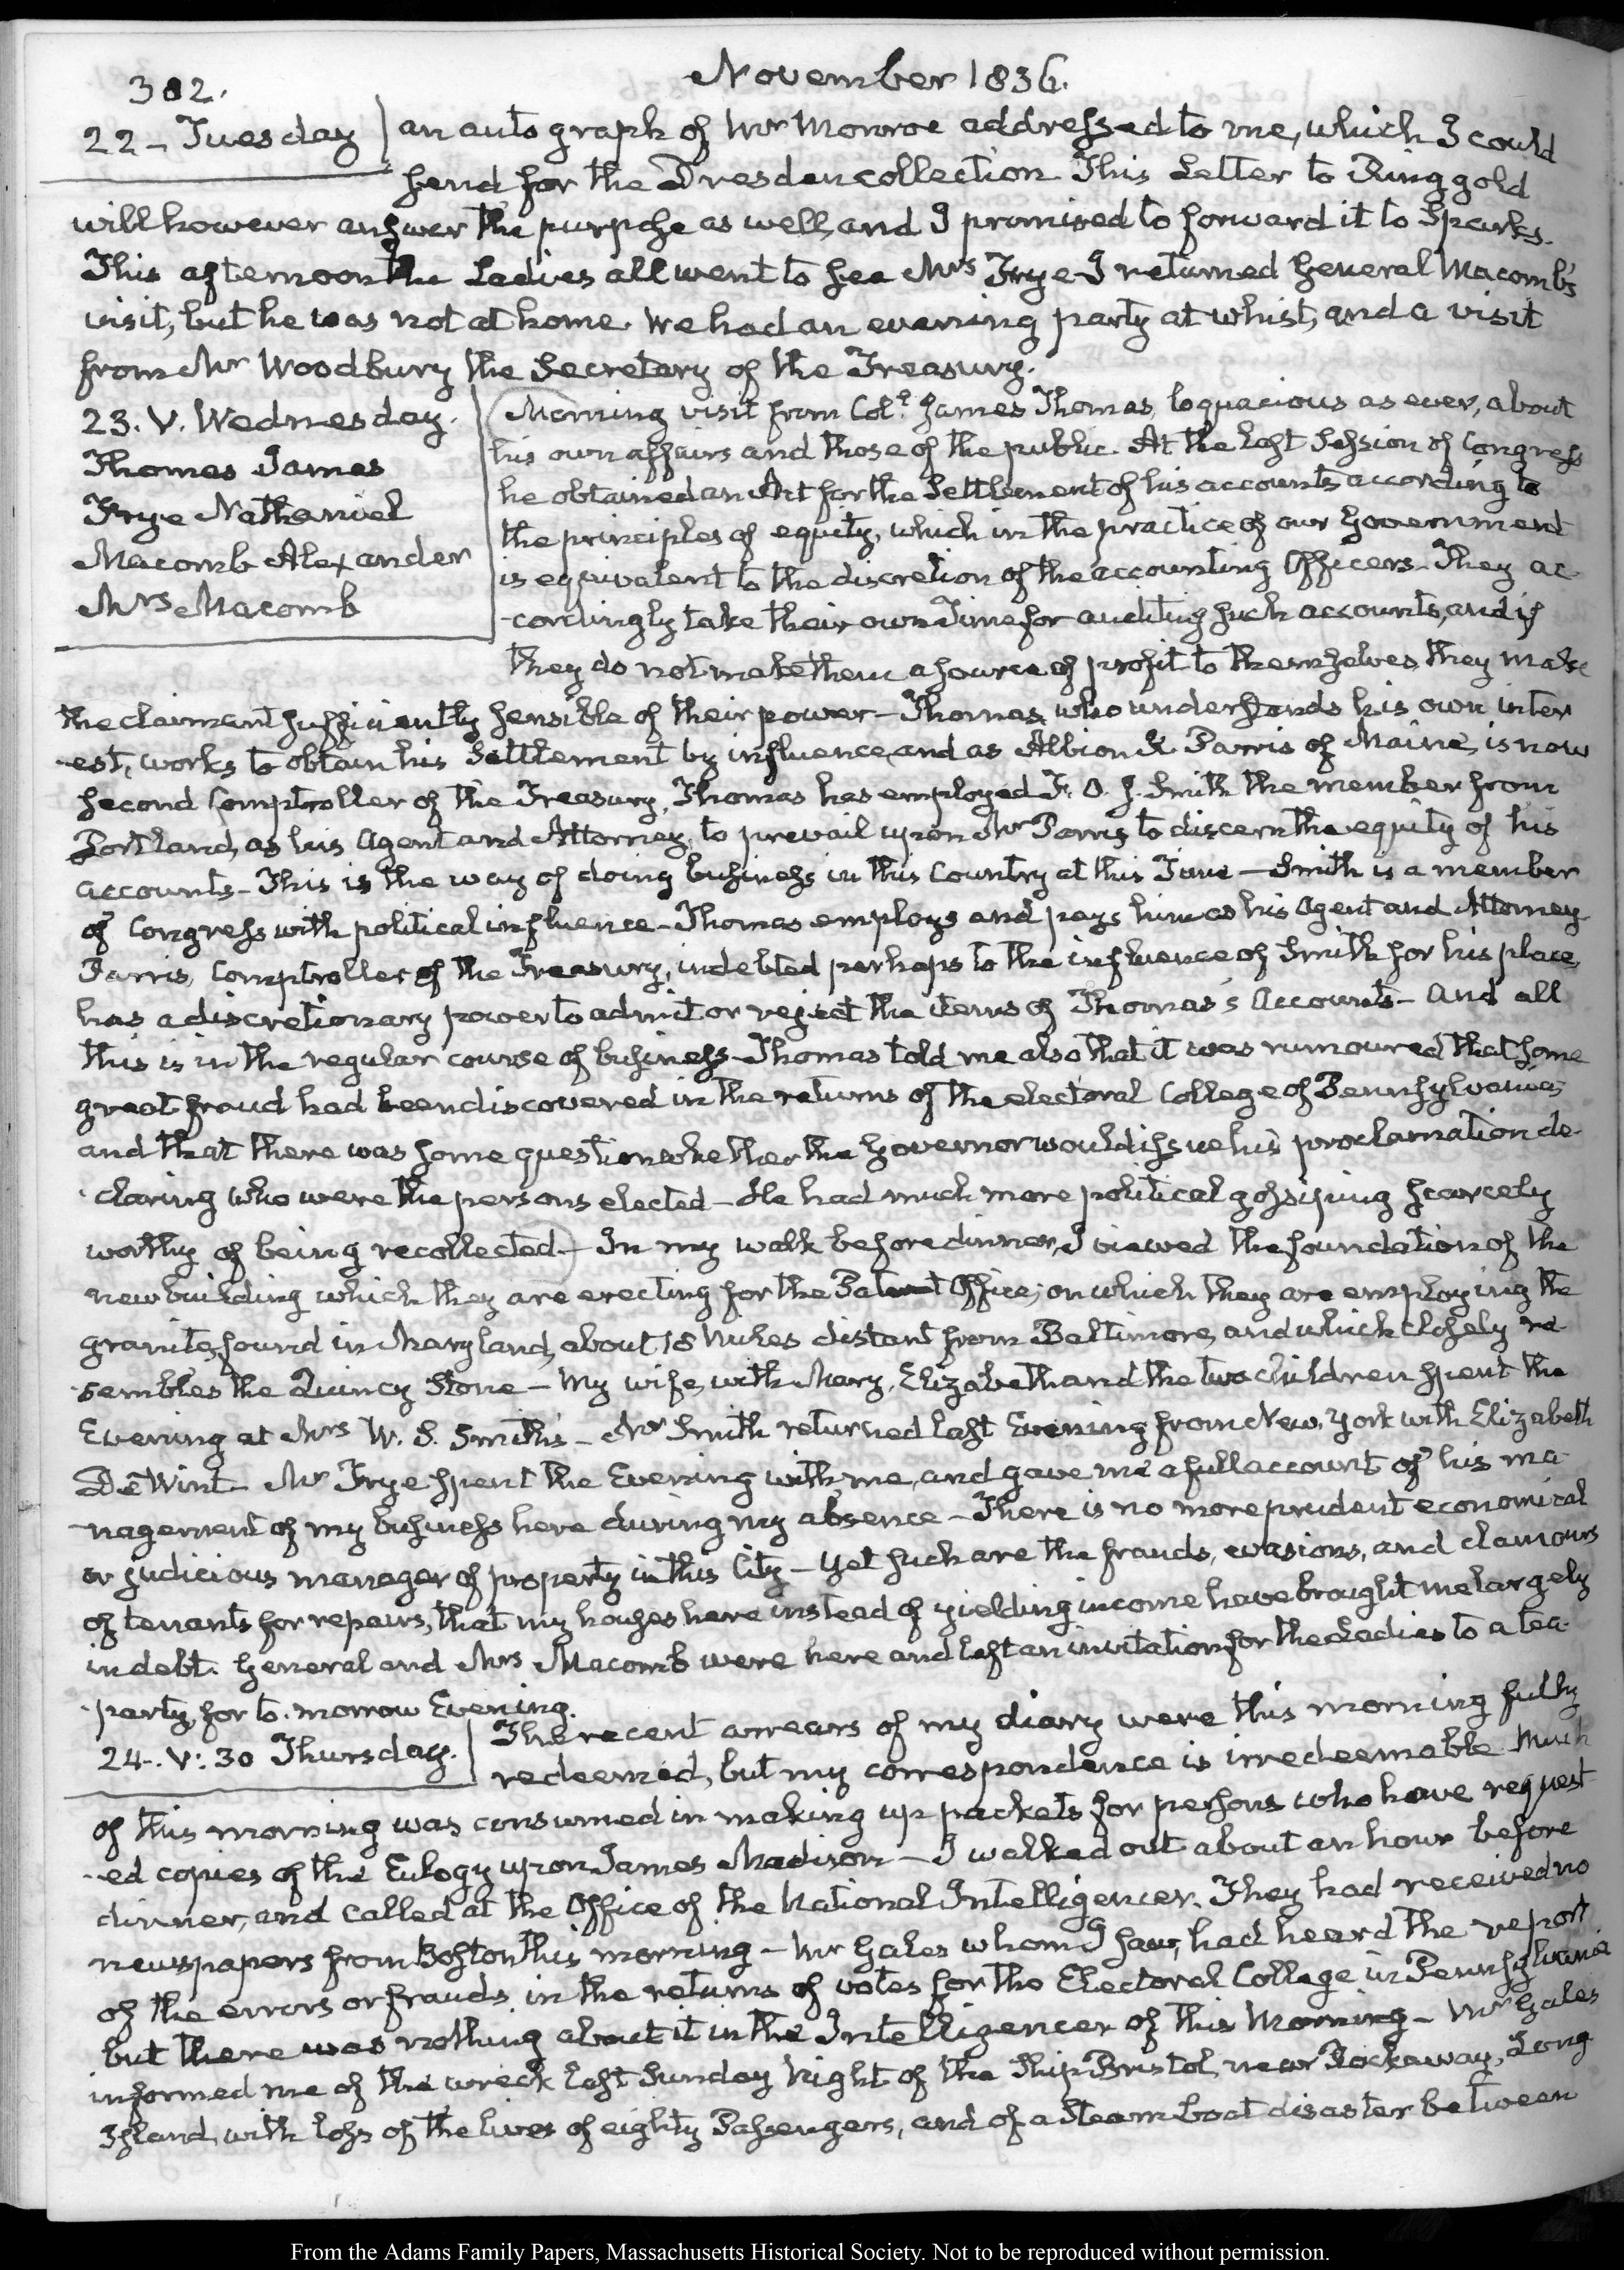 382.
November 1836.
22 – Tuesday
an autograph of Mr Monroe addressed to me, which I could
send for the Dresden collection This Letter to Ringgold
will however answer the purpose as well, and I promised to forward it to Sparks.
This afternoon the Ladies all went to see Mrs Frye – I returned General Macomb's
visit, but he was not at home. We had an evening party at whist, and a visit
from Mr Woodbury the Secretary of the Treasury.
23. V. Wednesday.
Thomas James
Frye Nathaniel
Macomb Alexander
Mrs Macomb
Morning visit from Col.l James Thomas, loquacious as ever, about
his own affairs and those of the public. At the last Session of Congress
he obtained an Act for the Settlement of his accounts according to
the principles of equity, which in the practice of our Government
is equivalent to the discretion of the accounting Officers – They ac-
-cordingly take their own Time for auditing such accounts, and if
they do not make them a source of profit to themselves they make
the claimant sufficiently sensible of their power – Thomas, who understands his own inter
-est, works to obtain his Settlement by influence, and as Albion K. Parris of Maine, is now
second Comptroller of the Treasury, Thomas has employed F. O. J. Smith the member from
Portland, as his Agent and Attorney, to prevail upon Mr Parris to discern the equity of his
accounts – This is the way of doing business in this Country at this Time – Smith is a member
of Congress with political influence – Thomas employs and pays him as his Agent and Attorney
Parris, Comptroller of the Treasury, indebted perhaps to the influence of Smith for his place,
has a discretionary power to admit or reject the items of Thomas's Accounts – And all
this is in the regular course of business – Thomas told me also that it was rumoured that some
great fraud had been discovered in the returns of the electoral College of Pennsylvania;
and that there was some question whether the Governor would issue his proclamation de-
-claring who were the persons elected – He had much more political gossiping scarcely
worthy of being recollected – In my walk before dinner, I viewed the foundation of the
new building which they are erecting for the Patent Office; on which they are employing the
granite, found in Maryland, about 18 Miles distant from Baltimore, and which closely re-
-sembles the Quincy Stone – My wife, with Mary, Elizabeth and the two children spent the
Evening at Mrs W. S. Smith's – Mr Smith returned last Evening from New York with Elizabeth
De Wint – Mr Frye spent the Evening with me, and gave me a full account of his ma-
-nagement of my business here during my absence – There is no more prudent economical
or judicious manager of property in this City – Yet such are the frauds, evasions, and clamours
of tenants for repairs, that my houses here instead of yielding income have brought me largely
in debt. General and Mrs Macomb were here and left an invitation for the Ladies to a tea-
-party, for to-morrow Evening.
24. V: 30 Thursday.
The recent arrears of my diary were this morning fully
redeemed, but my correspondence is irredeemable. Much
of this morning was consumed in making up packets for persons who have request
-ed copies of the Eulogy upon James Madison – I walked out about an hour before
dinner, and called at the Office of the National Intelligencer. They had received no
newspapers from Boston this morning – Mr Gales whom I saw, had heard the report
of the errors or frauds in the returns of votes for the Electoral College in Pennsylvania
but there was nothing about it in the Intelligencer of this Morning – Mr Gales
informed me of the wreck last Sunday Night of the Ship Bristol, near Rockaway, Long
Island, with loss of the lives of eighty Passengers, and of a Steam boat disaster between
From the Adams Family Papers, Massachusetts Historical Society. Not to be reproduced without permission.